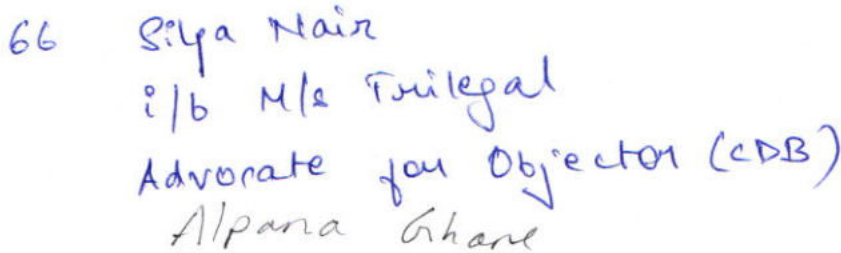 66 Siya Nair
i/b M/s Trilegal
Advocate for Objector (CDB)
Alpana Ghone